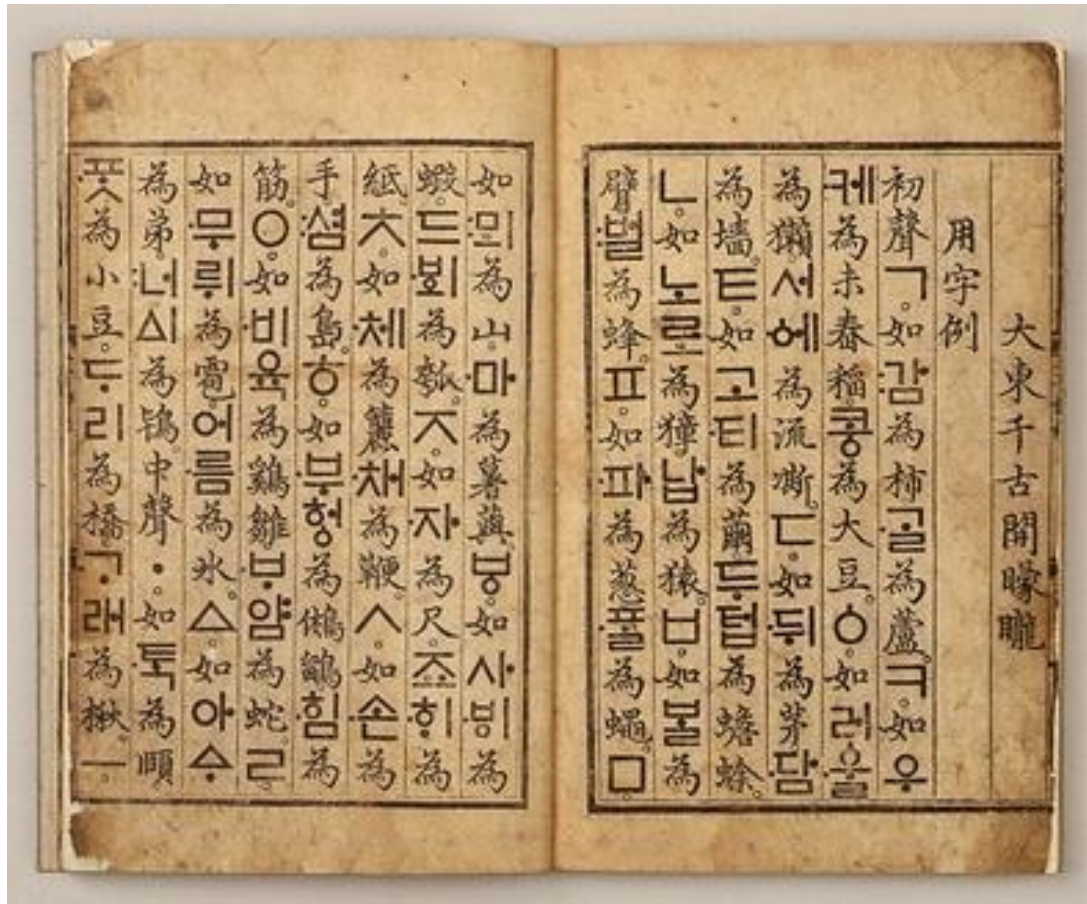 大東千古開矇矓
用字例
初聲ㄱ。如:감為柿。ᄀᆞᆯ為蘆。ㅋ。如우
케為未舂稻。코ᇰ為大豆。ㆁ。如러ᅌᅮᆯ
為獺。서ᅌᅦ為流凘。ㄷ。如뒤為茅。담
為墻。ㅌ。如고티為繭。두텁為蟾蜍。
ㄴ。如노로為獐。납為猿。ㅂ。如ᄇᆞᆯ為
臂。:벌為蜂。ㅍ。如파為葱。ᄑᆞᆯ為蠅。ㅁ。
如:뫼為山。마為薯藇。ㅸ。如사ᄫᅵ為
蝦。드ᄫᅴ為瓠。ㅈ。如자為尺。죠ᄒᆡ為
紙。ㅊ。如체為簏。채為鞭。ㅅ。如손為
手。:셤為島。ㅎ。如부허ᇰ為鵂鶹。힘為
筋。ㅇ。如비육為鷄雛。ᄇᆞ얌為蛇。ㄹ。
如무뤼為雹。어름為氷。ㅿ。如아ᅀᆞ
為弟。:너ᅀᅵ為鴇。中聲ㆍ。如ᄐᆞᆨ為頤
ᄑᆞᆺ為小豆。ᄃᆞ리為橋。ᄀᆞ래為楸。ㅡ。